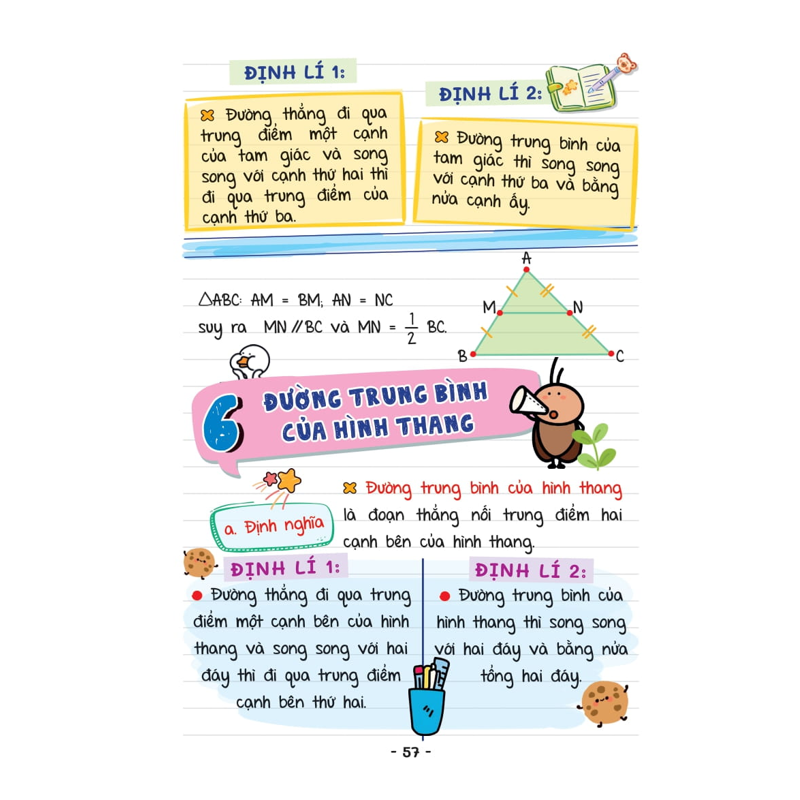 ĐỊNH LÍ 1:
Đường thẳng đi qua
trung điểm một cạnh
của tam giác và song
song với cạnh thứ hai thì
đi qua trung điểm của
cạnh thứ ba.
ĐỊNH LÍ 2:
Đường trung bình của
tam giác thì song song
với cạnh thứ ba và bằng
nửa cạnh ấy.
△ABC: AM = BM; AN = NC
suy ra MN // BC và MN = 1/2 BC.
A
M
N
B
C
6
ĐƯỜNG TRUNG BÌNH
CỦA HÌNH THANG
a. Định nghĩa
Đường trung bình của hình thang
là đoạn thẳng nối trung điểm hai
cạnh bên của hình thang.
ĐỊNH LÍ 1:
Đường thẳng đi qua trung
điểm một cạnh bên của hình
thang và song song với hai
đáy thì đi qua trung điểm
cạnh bên thứ hai.
ĐỊNH LÍ 2:
Đường trung bình của
hình thang thì song song
với hai đáy và bằng nửa
tổng hai đáy.
- 57 -